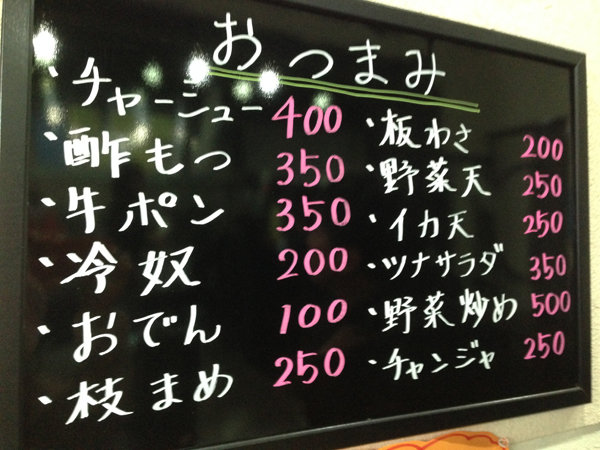 おつまみ
・チャーシュー 400
・酢もつ 350
・牛ポン 350
・冷奴 200
・おでん 100
・枝まめ 250
・板わさ 200
・野菜天 250
・イカ天 250
・ツナサラダ 350
・野菜炒め 500
・チャンジャ 250